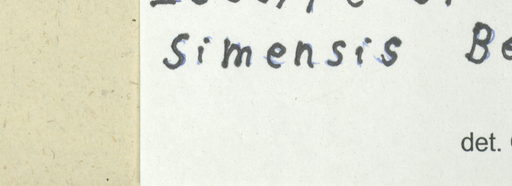 Simensis Be
det.